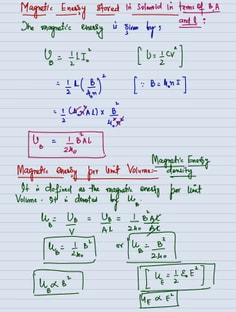 Magnetic Energy stored in Solenoid in terms of B, A and l :
The magnetic energy is given by;
U_B = 1/2 L I_0^2 [ U = 1/2 CV^2 ]
= 1/2 L (B/μ_0 n)^2 [ ∵ B = μ_0 n I ]
= 1/2 (μ_0 n^2 A l) × B^2/μ_0^2 n^2
U_B = 1/2μ_0 B^2 A l
Magnetic energy per Unit Volume:- Magnetic Energy density
It is defined as the magnetic energy per unit
Volume. It is denoted by u_B.
u_B = U_B/V = U_B/Al = 1/2μ_0 B^2Al/Al
u_B = 1/2μ_0 B^2 or u_B = B^2/2μ_0
u_B ∝ B^2 [ u_E = 1/2 ε_0 E^2 ]
u_E ∝ E^2